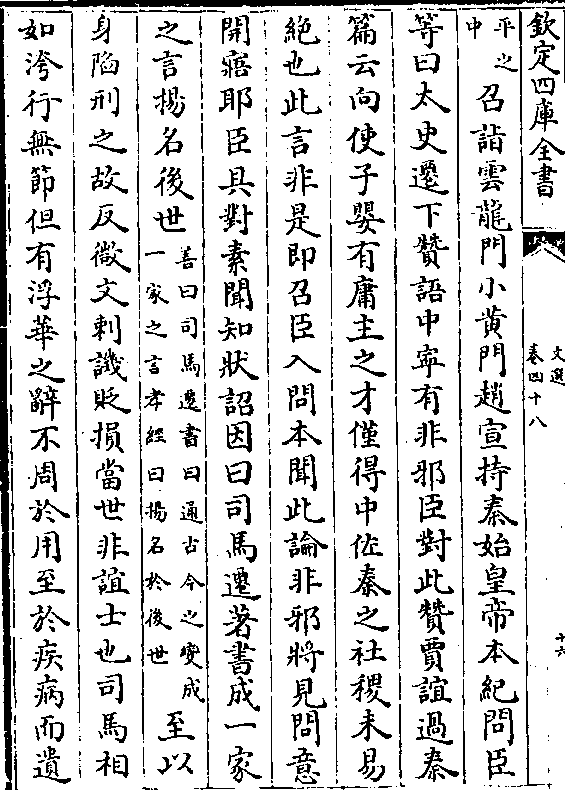 欽定四庫全書
文選
卷四十八
十六
平之
中
召詣雲龍門小黃門趙宣持秦始皇帝本紀問臣
等曰太史遷下贊語中寜有非邪臣對此贊賈誼過秦
篇云向使子嬰有庸主之才僅得中佐秦之社稷未易
絶也此言非是即召臣入問本聞此論非邪將見問意
開寤耶臣具對素聞知狀詔因曰司馬遷著書成一家
之言揚名後世
善曰司馬遷書曰通古今之變成
一家之言孝經曰揚名於後世
至以
身陷刑之故反㣲文刺譏貶損當世非誼士也司馬相
如洿行無節但有浮華之辭不周於用至於疾病而遺